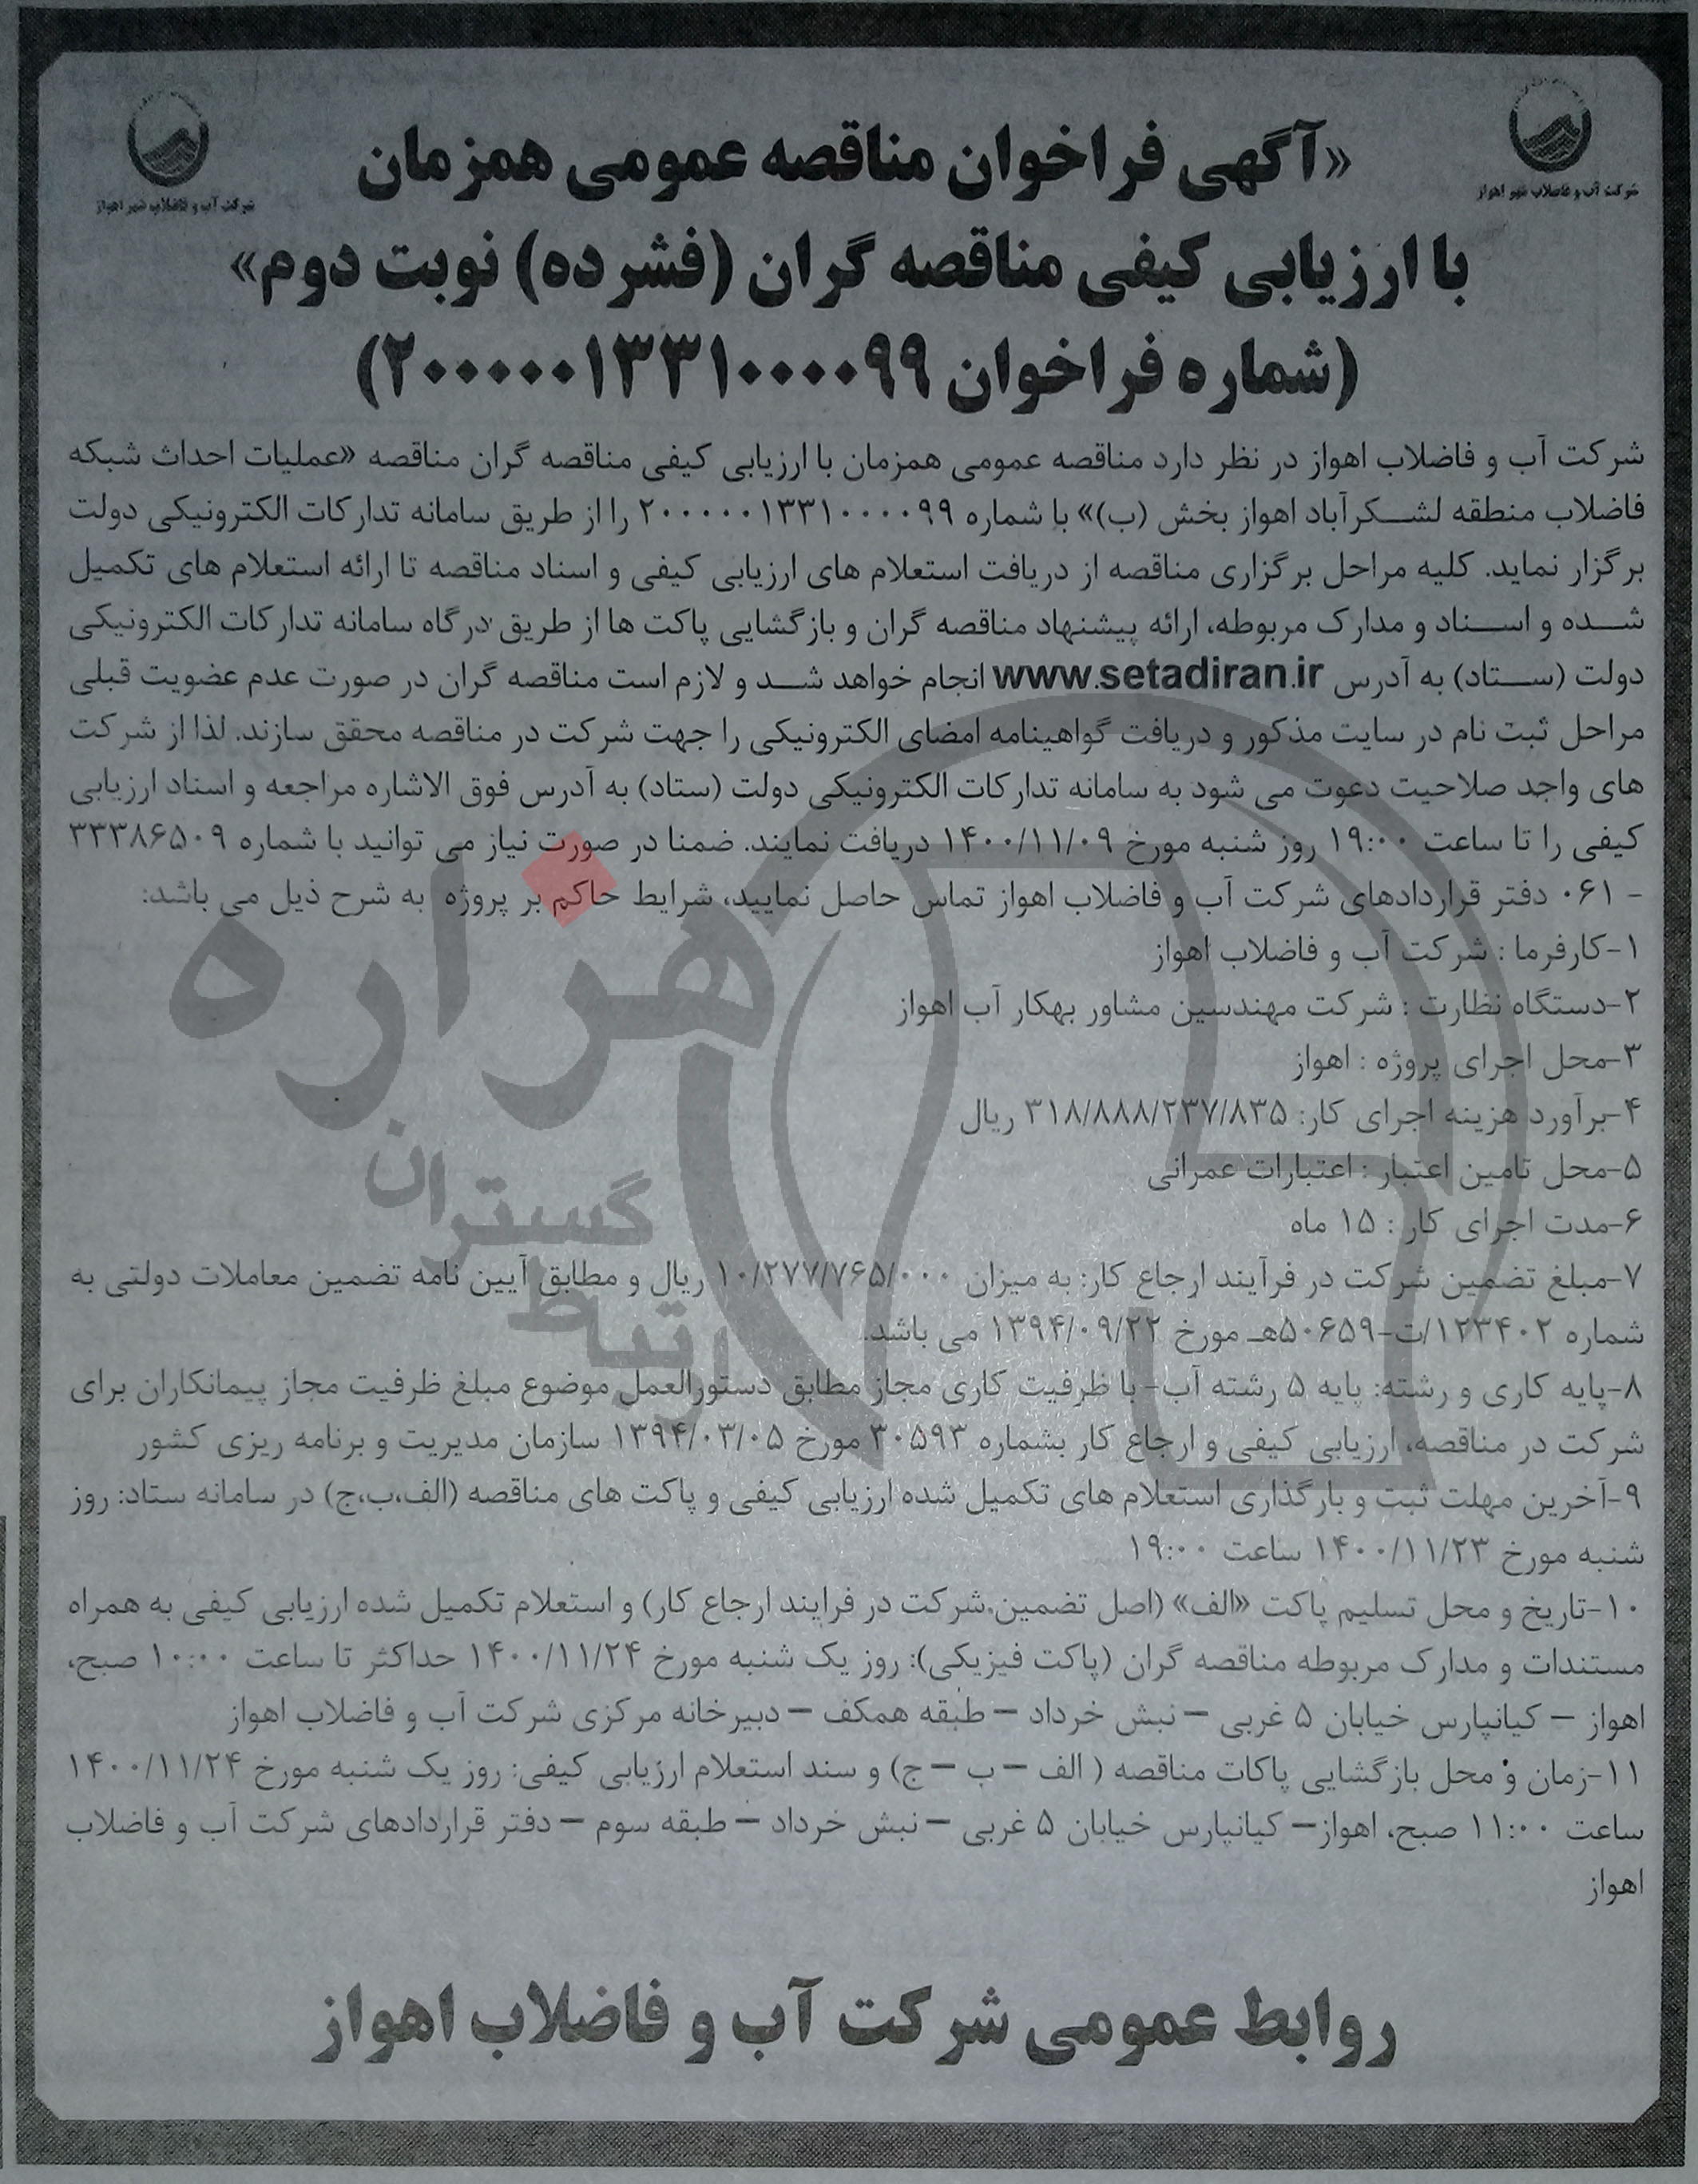 شرکت آب و فاضلاب شهر اهواز
شرکت آب و فاضلاب شهر اهواز
«آگهی فراخوان مناقصه عمومی همزمان
با ارزیابی کیفی مناقصه گران (فشرده) نوبت دوم»
(شماره فراخوان ۲۰۰۰۰۰۱۳۳۱۰۰۰۰۹۹)
شرکت آب و فاضلاب اهواز در نظر دارد مناقصه عمومی همزمان با ارزیابی کیفی مناقصه گران مناقصه «عملیات احداث شبکه
فاضلاب منطقه لشکرآباد اهواز بخش (ب)» با شماره ۲۰۰۰۰۰۱۳۳۱۰۰۰۰۹۹ را از طریق سامانه تدارکات الکترونیکی دولت
برگزار نماید. کلیه مراحل برگزاری مناقصه از دریافت استعلام های ارزیابی کیفی و اسناد مناقصه تا ارائه استعلام های تکمیل
شده و اسناد و مدارک مربوطه، ارائه پیشنهاد مناقصه گران و بازگشایی پاکت ها از طریق درگاه سامانه تدارکات الکترونیکی
دولت (ستاد) به آدرس www.setadiran.ir انجام خواهد شد و لازم است مناقصه گران در صورت عدم عضویت قبلی
مراحل ثبت نام در سایت مذکور و دریافت گواهینامه امضای الکترونیکی را جهت شرکت در مناقصه محقق سازند. لذا از شرکت
های واجد صلاحیت دعوت می شود به سامانه تدارکات الکترونیکی دولت (ستاد) به آدرس فوق الاشاره مراجعه و اسناد ارزیابی
کیفی را تا ساعت ۱۹:۰۰ روز شنبه مورخ ۱۴۰۰/۱۱/۰۹ دریافت نمایند. ضمنا در صورت نیاز می توانید با شماره ۳۳۳۸۶۵۰۹
- ۰۶۱ دفتر قراردادهای شرکت آب و فاضلاب اهواز تماس حاصل نمایید، شرایط حاکم بر پروژه به شرح ذیل می باشد:
۱-کارفرما : شرکت آب و فاضلاب اهواز
۲-دستگاه نظارت : شرکت مهندسین مشاور بهکار آب اهواز
۳-محل اجرای پروژه : اهواز
۴-برآورد هزینه اجرای کار: ۳۱۸/۸۸۸/۲۳۷/۸۳۵ ریال
۵-محل تامین اعتبار : اعتبارات عمرانی
۶-مدت اجرای کار : ۱۵ ماه
۷-مبلغ تضمین شرکت در فرآیند ارجاع کار: به میزان ۱۰/۲۷۷/۷۶۵/۰۰۰ ریال و مطابق آیین نامه تضمین معاملات دولتی به
شماره ۱۲۳۴۰۲/ت-۵۰۶۵۹هـ مورخ ۱۳۹۴/۰۹/۲۲ می باشد.
۸-پایه کاری و رشته: پایه ۵ رشته آب- با ظرفیت کاری مجاز مطابق دستورالعمل موضوع مبلغ ظرفیت مجاز پیمانکاران برای
شرکت در مناقصه، ارزیابی کیفی و ارجاع کار بشماره ۳۰۵۹۳ مورخ ۱۳۹۴/۰۳/۰۵ سازمان مدیریت و برنامه ریزی کشور
۹-آخرین مهلت ثبت و بارگذاری استعلام های تکمیل شده ارزیابی کیفی و پاکت های مناقصه (الف،ب،ج) در سامانه ستاد: روز
شنبه مورخ ۱۴۰۰/۱۱/۲۳ ساعت ۱۹:۰۰
۱۰-تاریخ و محل تسلیم پاکت «الف» (اصل تضمین شرکت در فرایند ارجاع کار) و استعلام تکمیل شده ارزیابی کیفی به همراه
مستندات و مدارک مربوطه مناقصه گران (پاکت فیزیکی): روز یک شنبه مورخ ۱۴۰۰/۱۱/۲۴ حداکثر تا ساعت ۱۰:۰۰ صبح،
اهواز – کیانپارس خیابان ۵ غربی – نبش خرداد – طبقه همکف – دبیرخانه مرکزی شرکت آب و فاضلاب اهواز
۱۱-زمان و محل بازگشایی پاکات مناقصه ( الف – ب – ج) و سند استعلام ارزیابی کیفی: روز یک شنبه مورخ ۱۴۰۰/۱۱/۲۴
ساعت ۱۱:۰۰ صبح، اهواز– کیانپارس خیابان ۵ غربی – نبش خرداد – طبقه سوم – دفتر قراردادهای شرکت آب و فاضلاب
اهواز
روابط عمومی شرکت آب و فاضلاب اهواز
هزاره
گستران
ارتباط